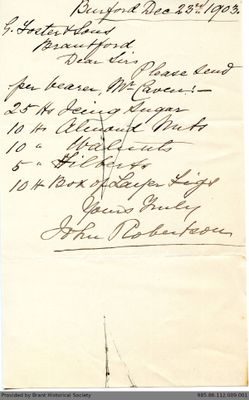 Burford Dec 23rd 1903.
G. Foster & Sons
Brantford,
Dear Sirs
Please Send
per bearer, Mr Caven:-
25 lbs Icing Sugar
10 lbs Almond Nuts
10 " Walnuts
5 " Filberts
10 lb Box of Layer Figs
Yours Truly
John Robertson
Provided by Brant Historical Society
985.88.112.009.001